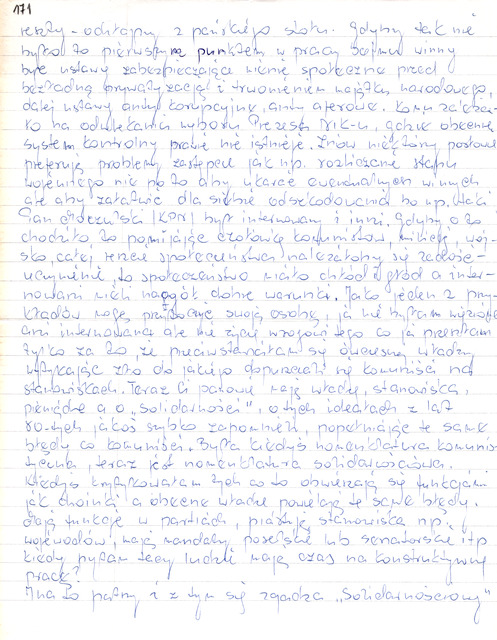 171
reszty - odrkajmy z pańskiego stołu. Gdyby tak nie
było to pierwszym punktem w pracy Sejmu winny
być ustawy zabezpieczające mienie społeczne przed
bezładną prywatyzacją i trwonieniem majątku narodowego,
dalej ustawy anty korupcyjne, anty aferowe. Komu zależa-
ło na odwlekaniu wyboru Prezesa NIK-u, gdzie obecnie
system kontrolny prawie nie istnieje. Znów niektórzy posłowie
preferują problemy zastępcze jak np. rozliczanie stanu
wojennego nie po to aby ukarać ewentualnych winnych
ale aby załatwić dla siebie odszkodowania bo np. taki
Pan (KPN) był internowany i inni. Gdyby o to
chodziło to pomijając czołówkę komunistów, milicję, woj-
sko, całej reszcie społeczeństwa należałoby się zadość-
uczynienie, bo społeczeństwo miało chłód i głód a inter-
nowani mieli na ogół dobre warunki. Jako jeden z przy-
kładów mogę przytoczyć swoją osobę, ja nie byłam więziona
ani internowana ale nie życzę wrogowi tego co ja przeszłam
tylko za to, że przeciwstawiałam się ówczesnej władzy
wytykając zło do jakiego dopuszczali się komuniści na
stanowiskach. Teraz ci panowie mają władzę, stanowiska,
pieniądze a o „Solidarności", o tych ideałach z lat
80-tych jakoś szybko zapomnieli, popełniając te same
błędy co komuniści. Była kiedyś nomenklatura komunis-
tyczna, teraz jest nomenklatura solidarnościowa.
Kiedyś krytykowałam tych co to obwieszają się funkcjami
jak choinki a obecne władze powielają te same błędy.
Mają funkcje w partiach, piastują stanowiska np.
wojewodów, mają mandaty poselskie lub senatorskie itp
kiedy pytam tedy ludzie mają czas na konstruktywną
pracę?
I na to patrzy i z tym się zgadza „Solidarnościowy"